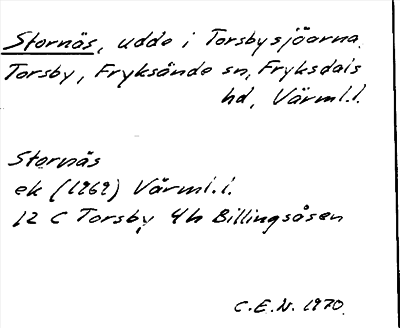 Stornäs, udde i Torsbysjöarna.
Torsby, Fryksände sn, Fryksdals
hd, Värml.l.
Stornäs
ek (1969) Värml.l.
12 C Torsby 4h Billingsåsen
C.E.N. 1970.